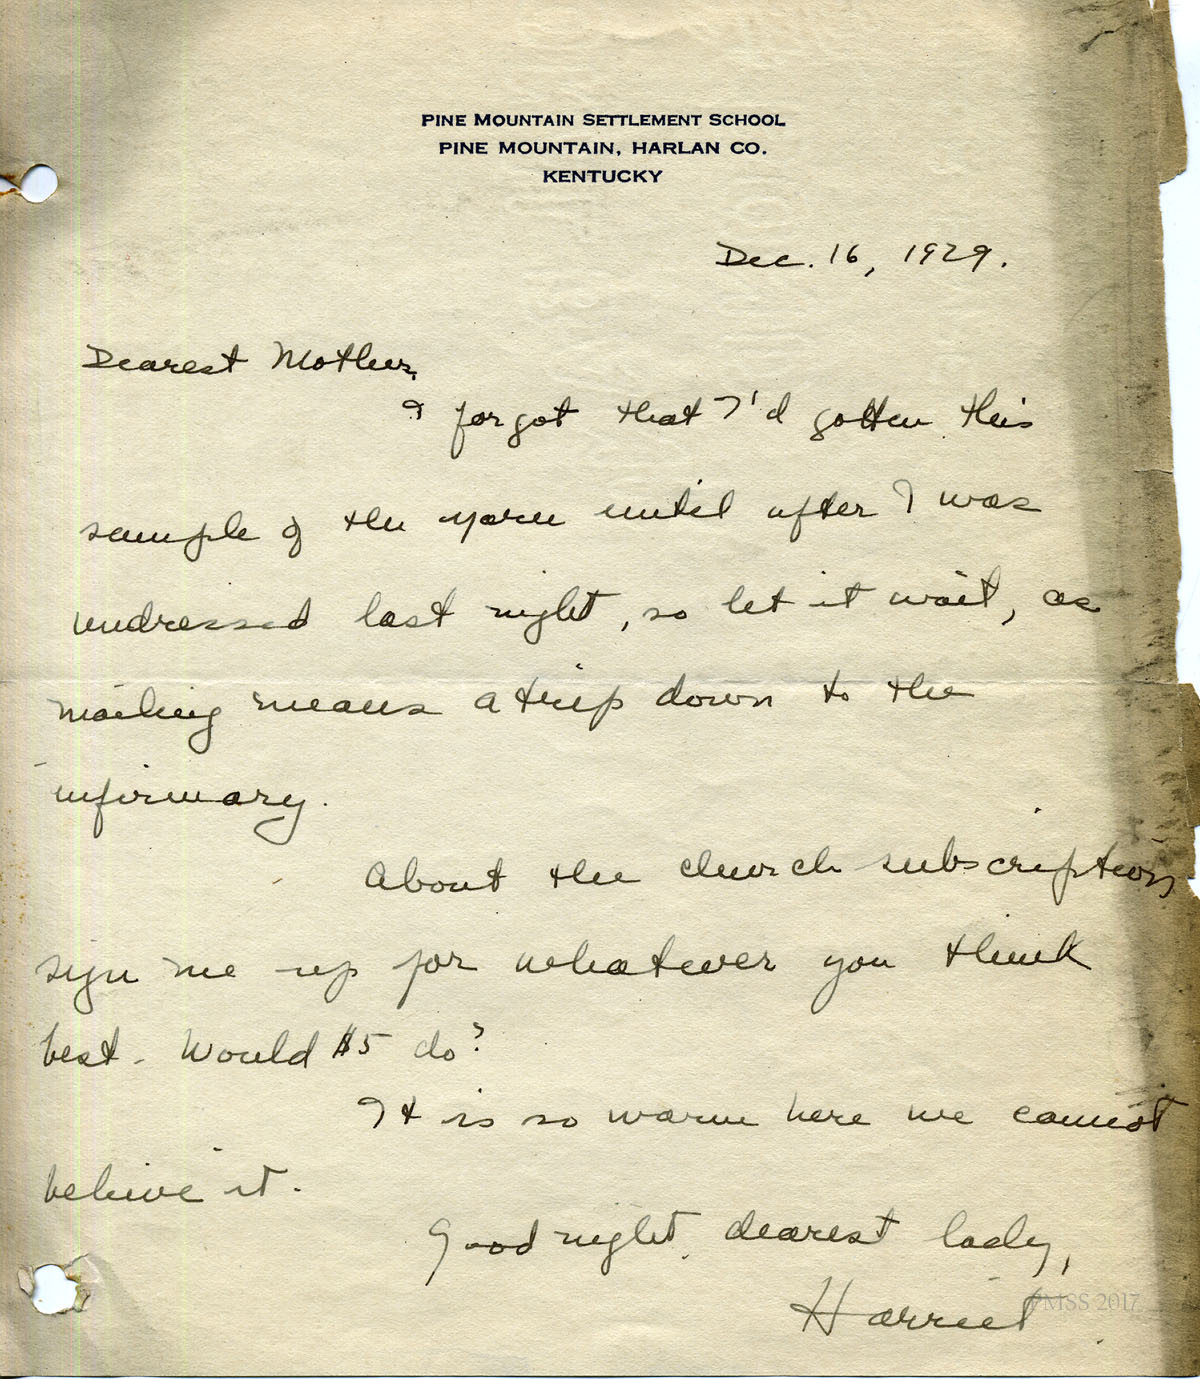 PINE MOUNTAIN SETTLEMENT SCHOOL
PINE MOUNTAIN, HARLAN CO.
KENTUCKY
Dec. 16, 1929.
Dearest Mother,
I forgot that I'd gotten this
sample of the yarn until after I was
undressed last night, so let it wait, as
mailing means a trip down to the
infirmary.
About the church subscription,
sign me up for whatever you think
best. Would $5 do?
It is so warm here we cannot
believe it.
Good night, dearest lady,
Harriet
PMSS 2017